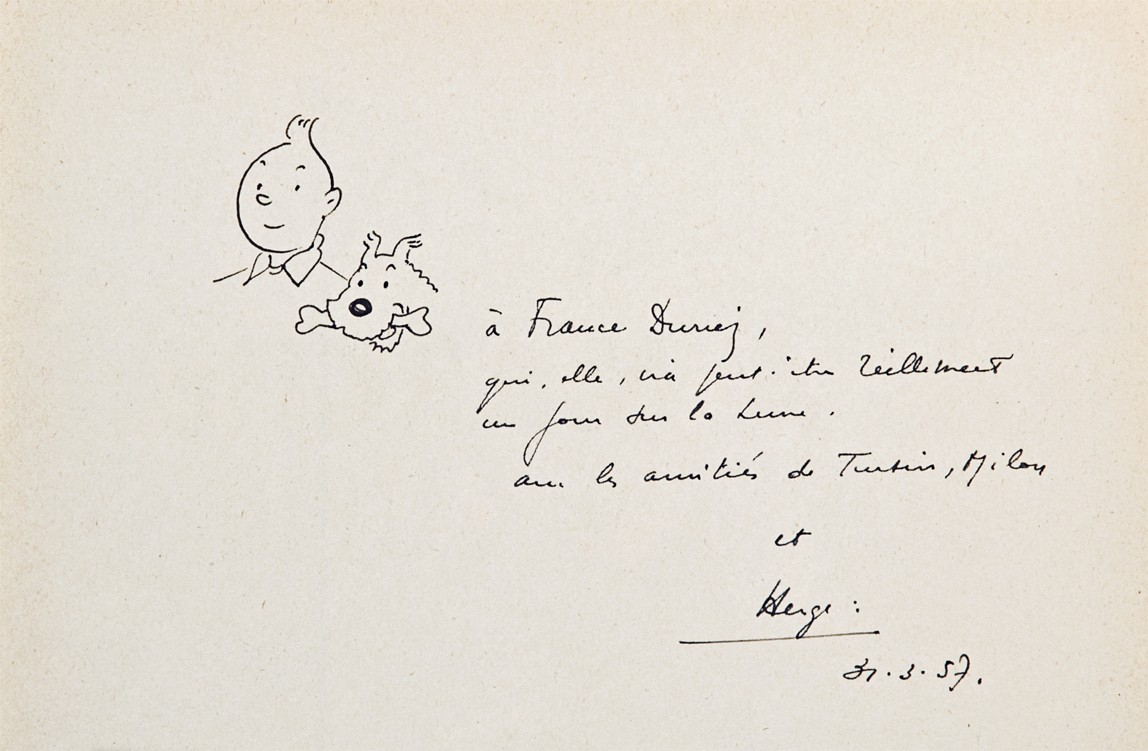 à France Duriez,
qui, elle, ira peut-être réellement
un jour sur la Lune.
avec les amitiés de Tintin, Milou
et
Hergé :
31.3.57.